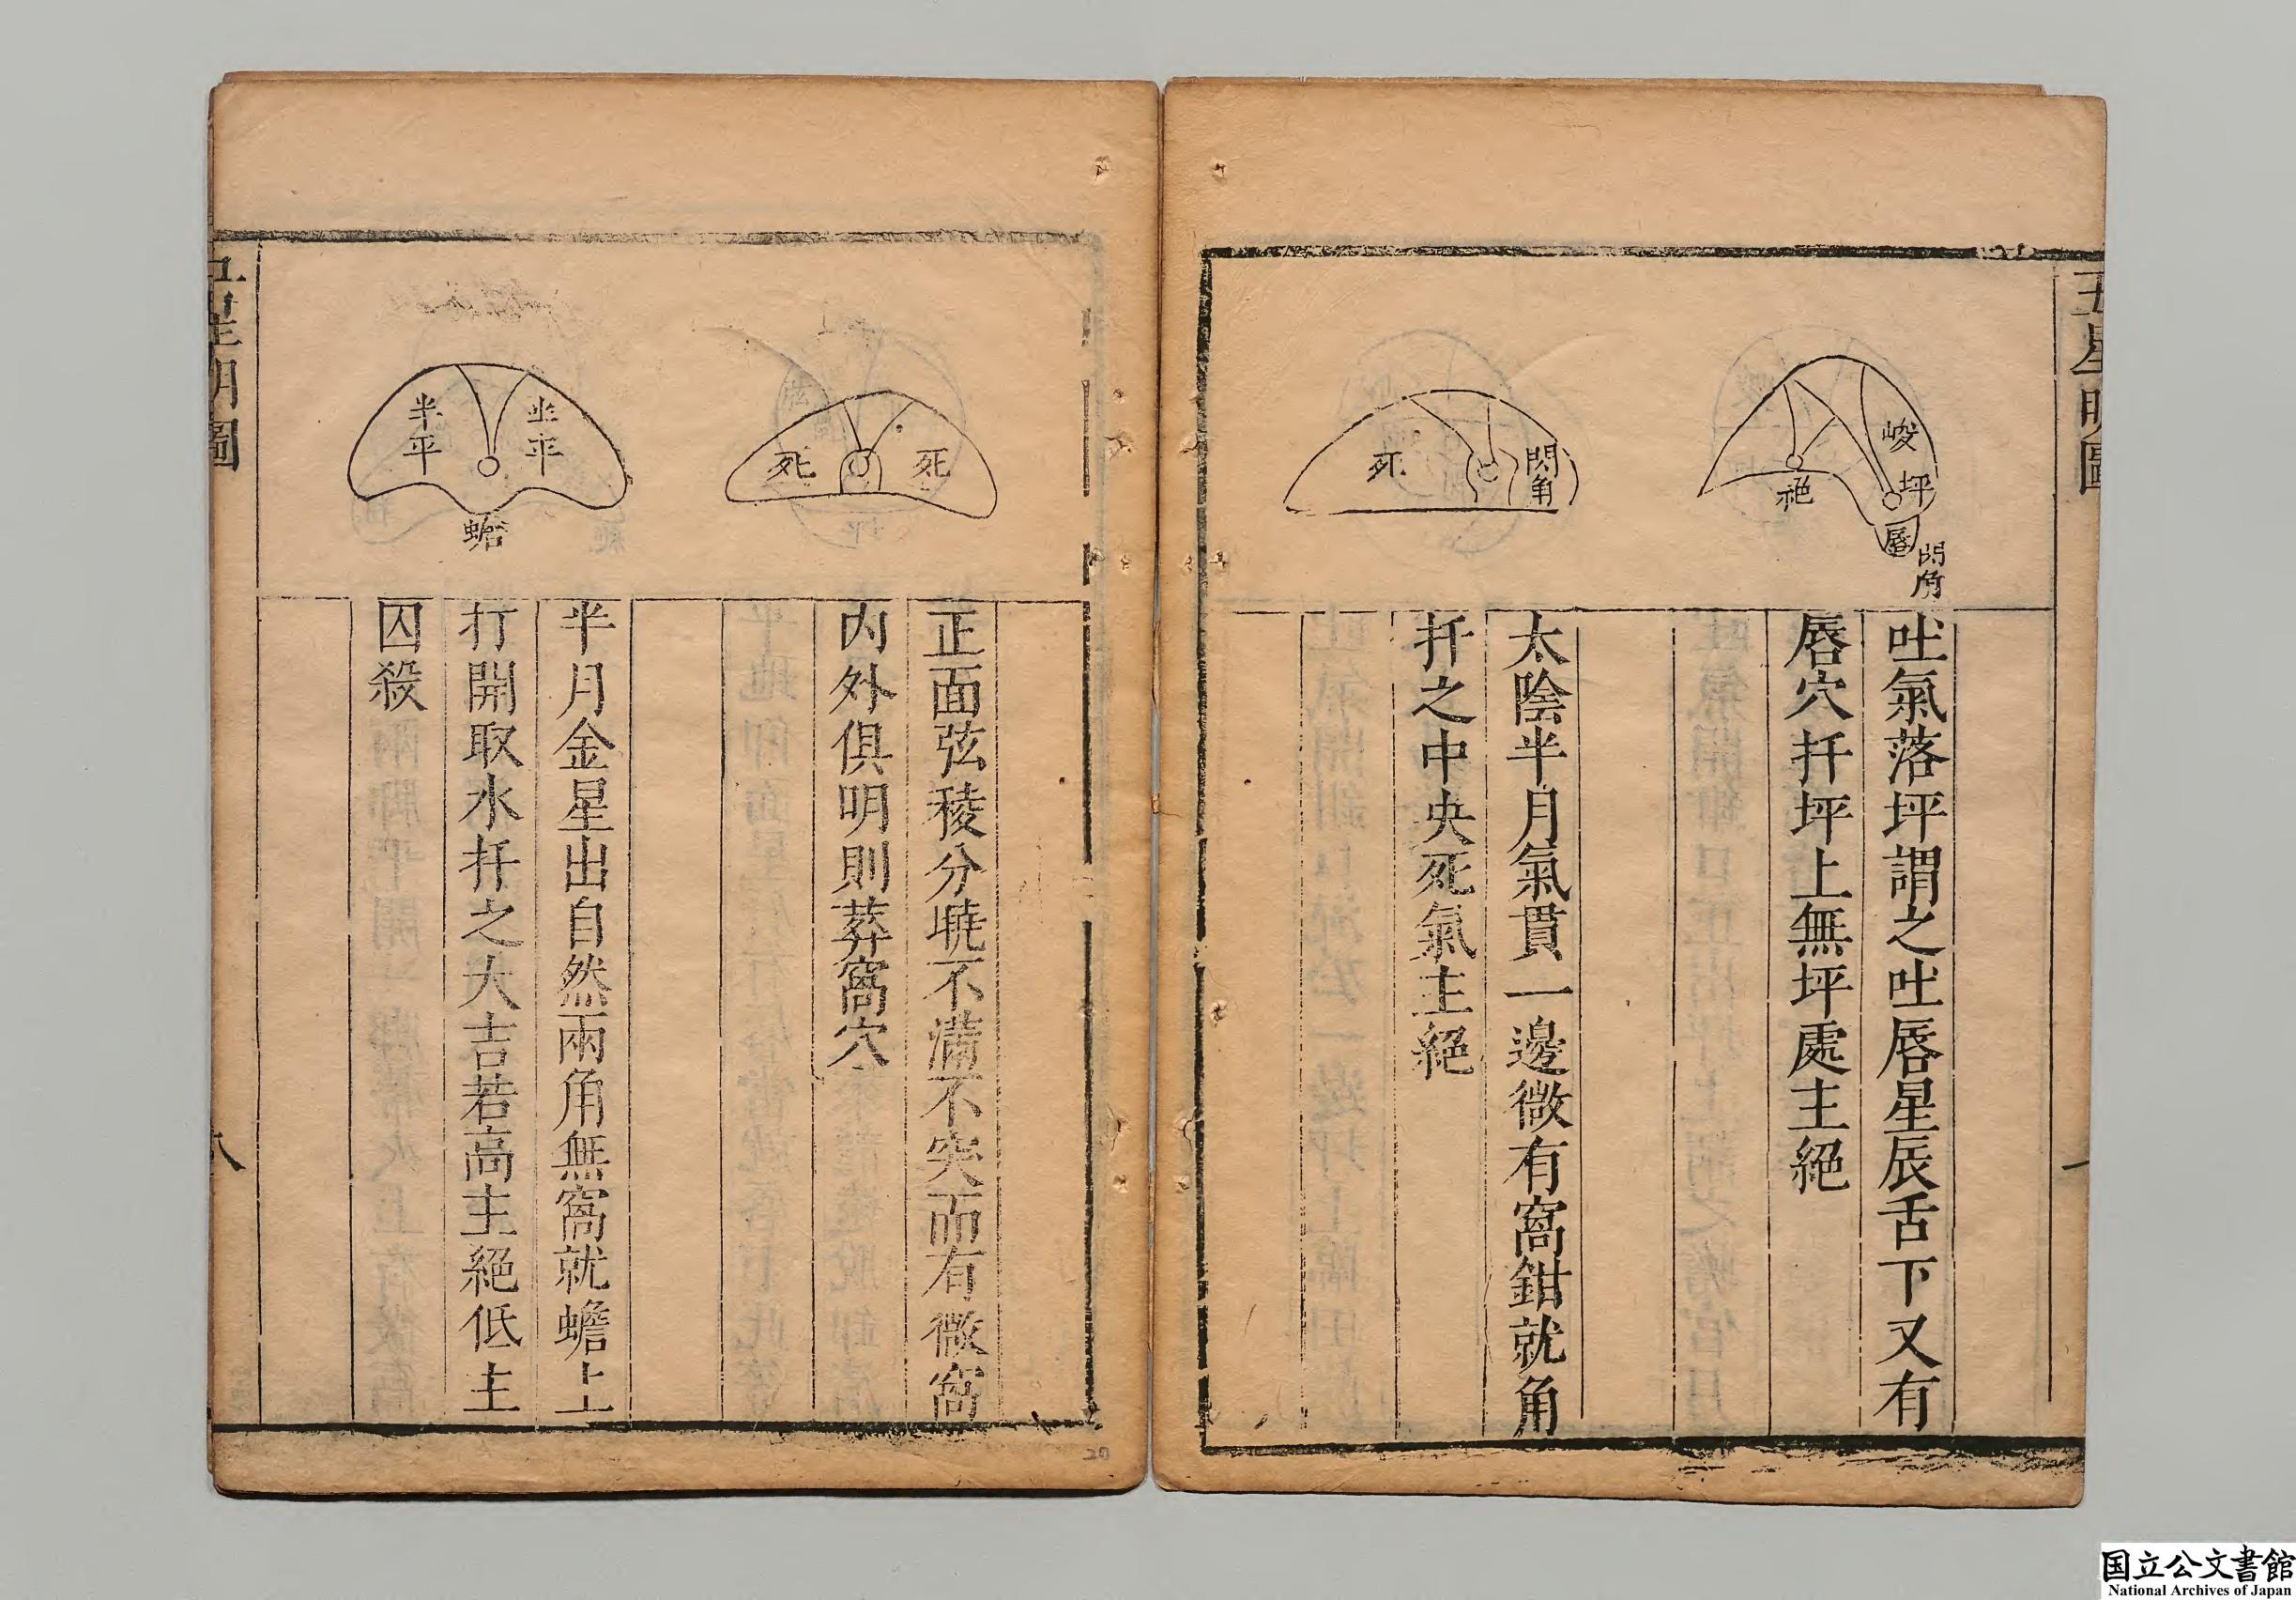 五星明圖
峻
坪
絕
唇
閃角
吐氣落坪謂之吐唇星辰舌下又有
唇穴扦坪上無坪處主絕
死
閃角
太陰半月氣貫一邊微有窩鉗就角
扦之中央死氣主絕
死
死
正面弦稜分墝不滿不突而有微窩
內外俱明則葬窩穴
半平
半平
蟾
半月金星出自然兩角無窩就蟾上
打開取水扦之大吉若高主絕低主
囚殺
五星明圖
八
20
国立公文書館
National Archives of Japan